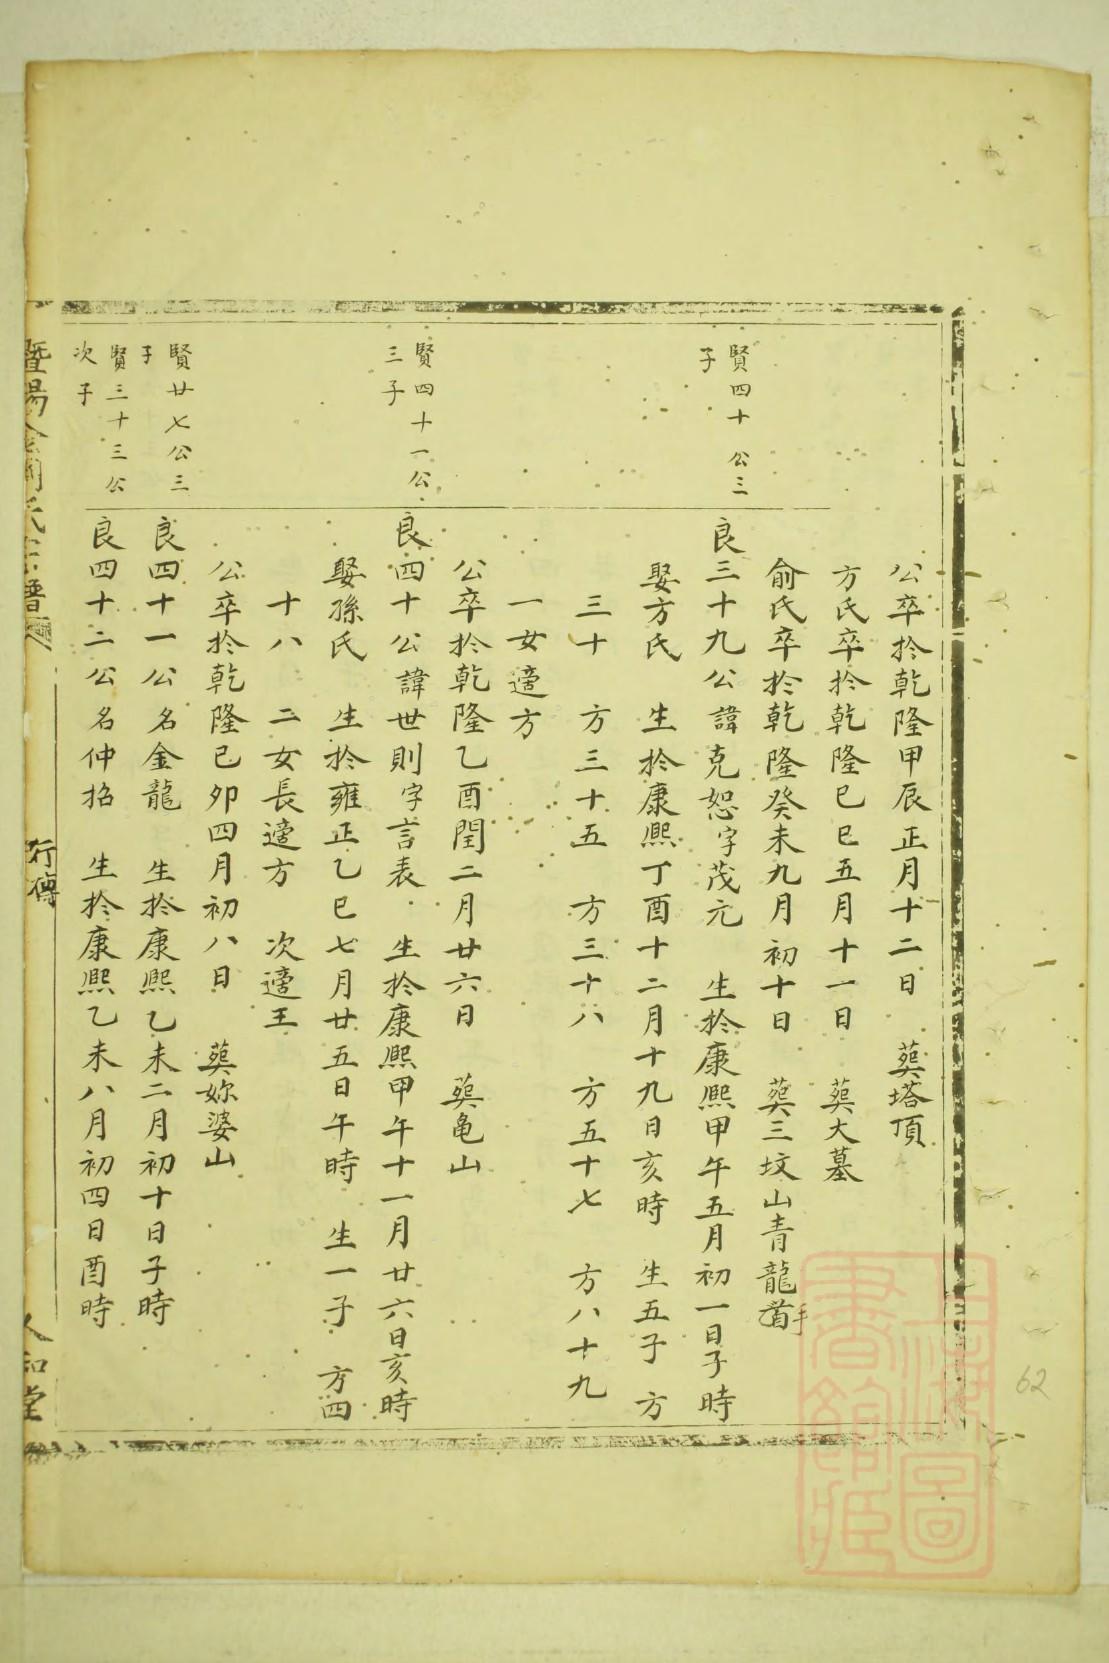 公卒於乾隆甲辰正月十二日 葬塔頂
方氏卒於乾隆已巳五月十一日 葬大墓
俞氏卒於乾隆癸未九月初十日 葬三坟山青龍首手
賢四十公三
子
良三十九公諱克恕字茂元 生於康熙甲午五月初一日子時
娶方氏 生於康熙丁酉十二月十九日亥時 生五子 方
三十 方三十五 方三十八 方五十七 方八十九
一女適方
公卒於乾隆乙酉閏二月廿六日 葬龟山
賢四十一公
三子
良四十公諱世則字言表 生於康熙甲午十一月廿六日亥時
娶孫氏 生於雍正乙巳七月廿五日午時 生一子 方四
十八 二女長適方 次適王
公卒於乾隆已卯四月初八日 葬妳婆山
賢廿七公三
子
良四十一公名金龍 生於康熙乙未二月初十日子時
賢三十三公
次子
良四十二公名仲招 生於康熙乙未八月初四日酉時
暨陽 氏宗譜
行傳
人和堂
上海圖書館藏
62